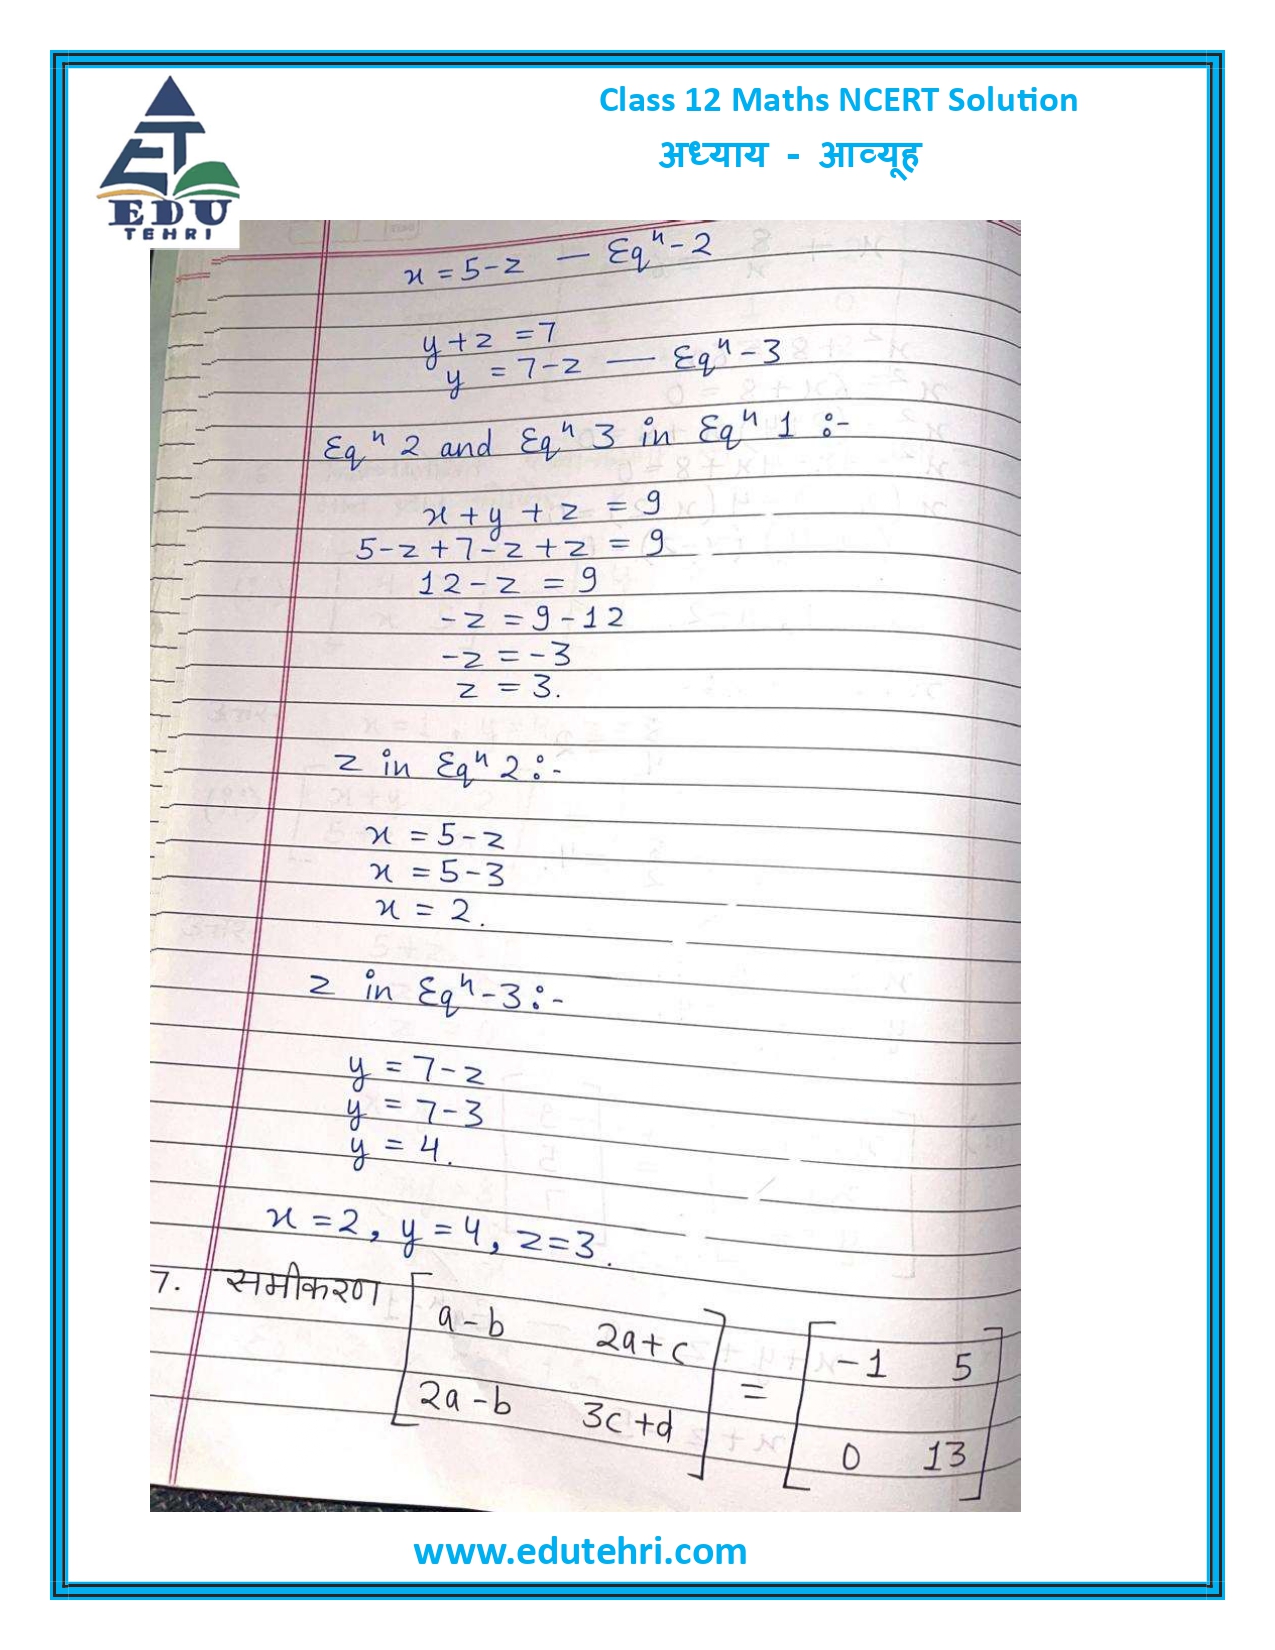 Class 12 Maths NCERT Solution
अध्याय - आव्यूह
EDU
TEHRI
x = 5-z — Eqⁿ-2
y+z = 7
y = 7-z — Eqⁿ-3
Eqⁿ 2 and Eqⁿ 3 in Eqⁿ 1 :-
x + y + z = 9
5-z+7-z+z = 9
12-z = 9
-z = 9-12
-z = -3
z = 3.
z in Eqⁿ 2 :-
x = 5-z
x = 5-3
x = 2.
z in Eqⁿ-3 :-
y = 7-z
y = 7-3
y = 4.
x = 2, y = 4, z = 3.
7. समीकरण [a-b 2a+c] = [-1 5]
[2a-b 3c+d] [0 13]
www.edutehri.com